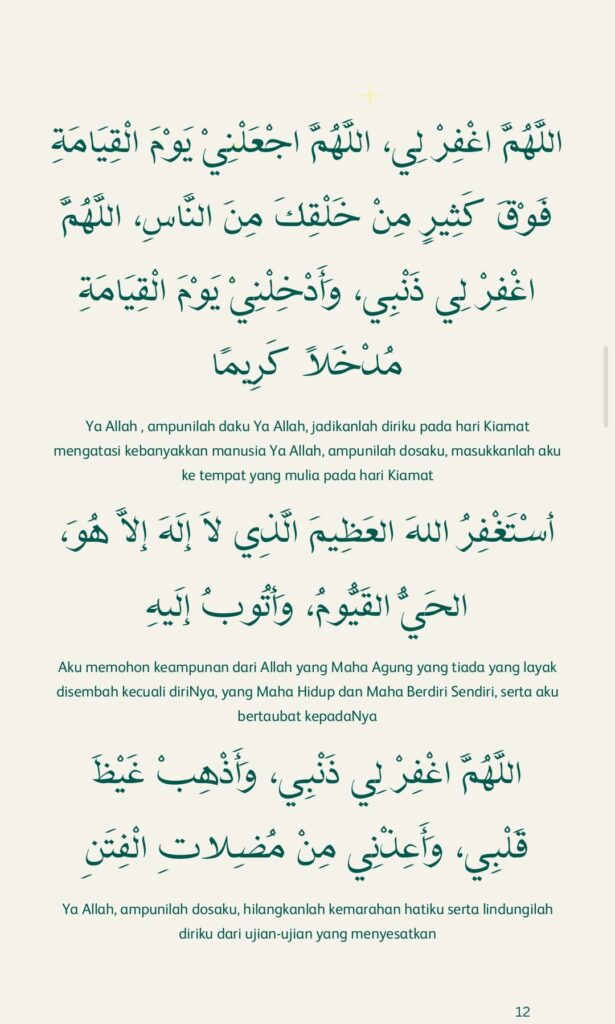 اللَّهُمَّ اغْفِرْ لِي، اللَّهُمَّ اجْعَلْنِيْ يَوْمَ الْقِيَامَةِ
فَوْقَ كَثِيرٍ مِنْ خَلْقِكَ مِنَ النَّاسِ، اللَّهُمَّ
اغْفِرْ لِي ذَنْبِي، وَأَدْخِلْنِيْ يَوْمَ الْقِيَامَةِ
مُدْخَلاً كَرِيمًا
Ya Allah , ampunilah daku Ya Allah, jadikanlah diriku pada hari Kiamat
mengatasi kebanyakkan manusia Ya Allah, ampunilah dosaku, masukkanlah aku
ke tempat yang mulia pada hari Kiamat
أسْتَغْفِرُ اللهَ العَظِيمَ الَّذِي لاَ إلَهَ إلاَّ هُوَ،
الحَيُّ القَيُّومُ، وَأتُوبُ إلَيهِ
Aku memohon keampunan dari Allah yang Maha Agung yang tiada yang layak
disembah kecuali diriNya, yang Maha Hidup dan Maha Berdiri Sendiri, serta aku
bertaubat kepadaNya
اللَّهُمَّ اغْفِرْ لِي ذَنْبِي، وَأَذْهِبْ غَيْظَ
قَلْبِي، وَأَعِذْنِي مِنْ مُضِلاتِ الْفِتَنِ
Ya Allah, ampunilah dosaku, hilangkanlah kemarahan hatiku serta lindungilah
diriku dari ujian-ujian yang menyesatkan
12